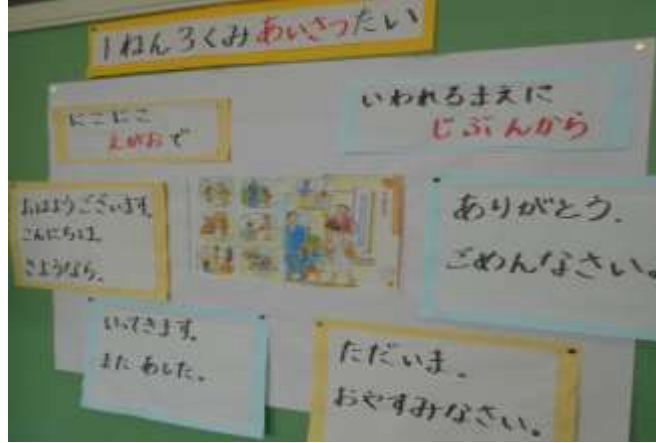 1ねんろくみあいさつたい
にこにこ
えがおで
いわれるまえに
じぶんから
おはようございます。
こんにちは。
さようなら。
ありがとう。
ごめんなさい。
いってきます。
また あした。
ただいま。
おやすみなさい。